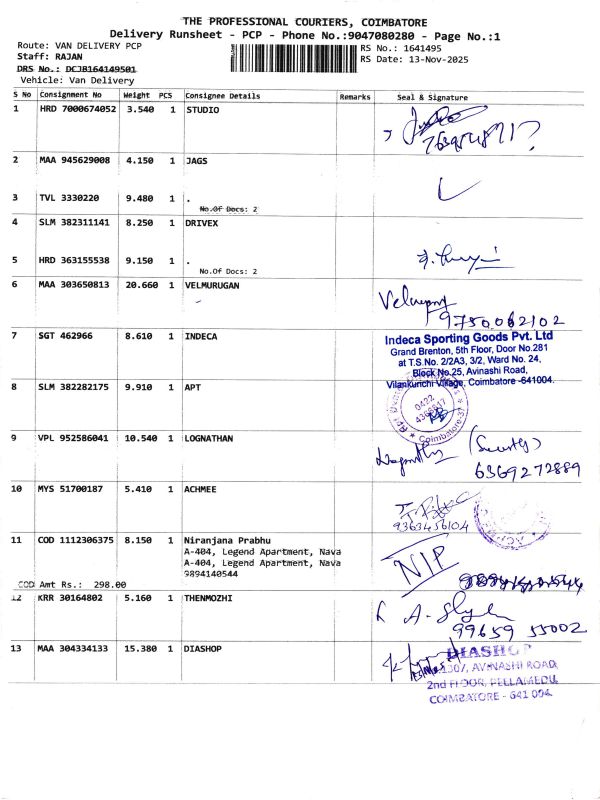 THE PROFESSIONAL COURIERS, COIMBATORE
Delivery Runsheet - PCP - Phone No.:9047080280 - Page No.:1
Route: VAN DELIVERY PCP
RS No.: 1641495
Staff: RAJAN
RS Date: 13-Nov-2025
DRS No.: DCJB164149501
Vehicle: Van Delivery
S No Consignment No Weight PCS Consignee Details Remarks Seal & Signature
1 HRD 7000674052 3.540 1 STUDIO
2 MAA 945629008 4.150 1 JAGS
3 TVL 3330220 9.480 1 .
No.Of Docs: 2
4 SLM 382311141 8.250 1 DRIVEX
5 HRD 363155538 9.150 1 .
No.Of Docs: 2
6 MAA 303650813 20.660 1 VELMURUGAN
9750062102
7 SGT 462966 8.610 1 INDECA
Indeca Sporting Goods Pvt. Ltd
Grand Brenton, 5th Floor, Door No.281
at T.S No. 2/2A3, 3/2, Ward No. 24,
Block No.25, Avinashi Road,
Vilankurichi Village, Coimbatore -641004.
8 SLM 382282175 9.910 1 APT
0422
Coimbatore-37
9 VPL 952586041 10.540 1 LOGNATHAN
6369272889
10 MYS 51700187 5.410 1 ACHMEE
9363456104
11 COD 1112306375 8.150 1 Niranjana Prabhu
A-404, Legend Apartment, Nava
A-404, Legend Apartment, Nava
9894140544
NIP
COD Amt Rs.: 298.00
12 KRR 30164802 5.160 1 THENMOZHI
99659 55002
13 MAA 304334133 15.380 1 DIASHOP
DIASHOP
1307, AVINASHI ROAD,
2nd FLOOR, PEELAMEDU,
COIMBATORE - 641 004.